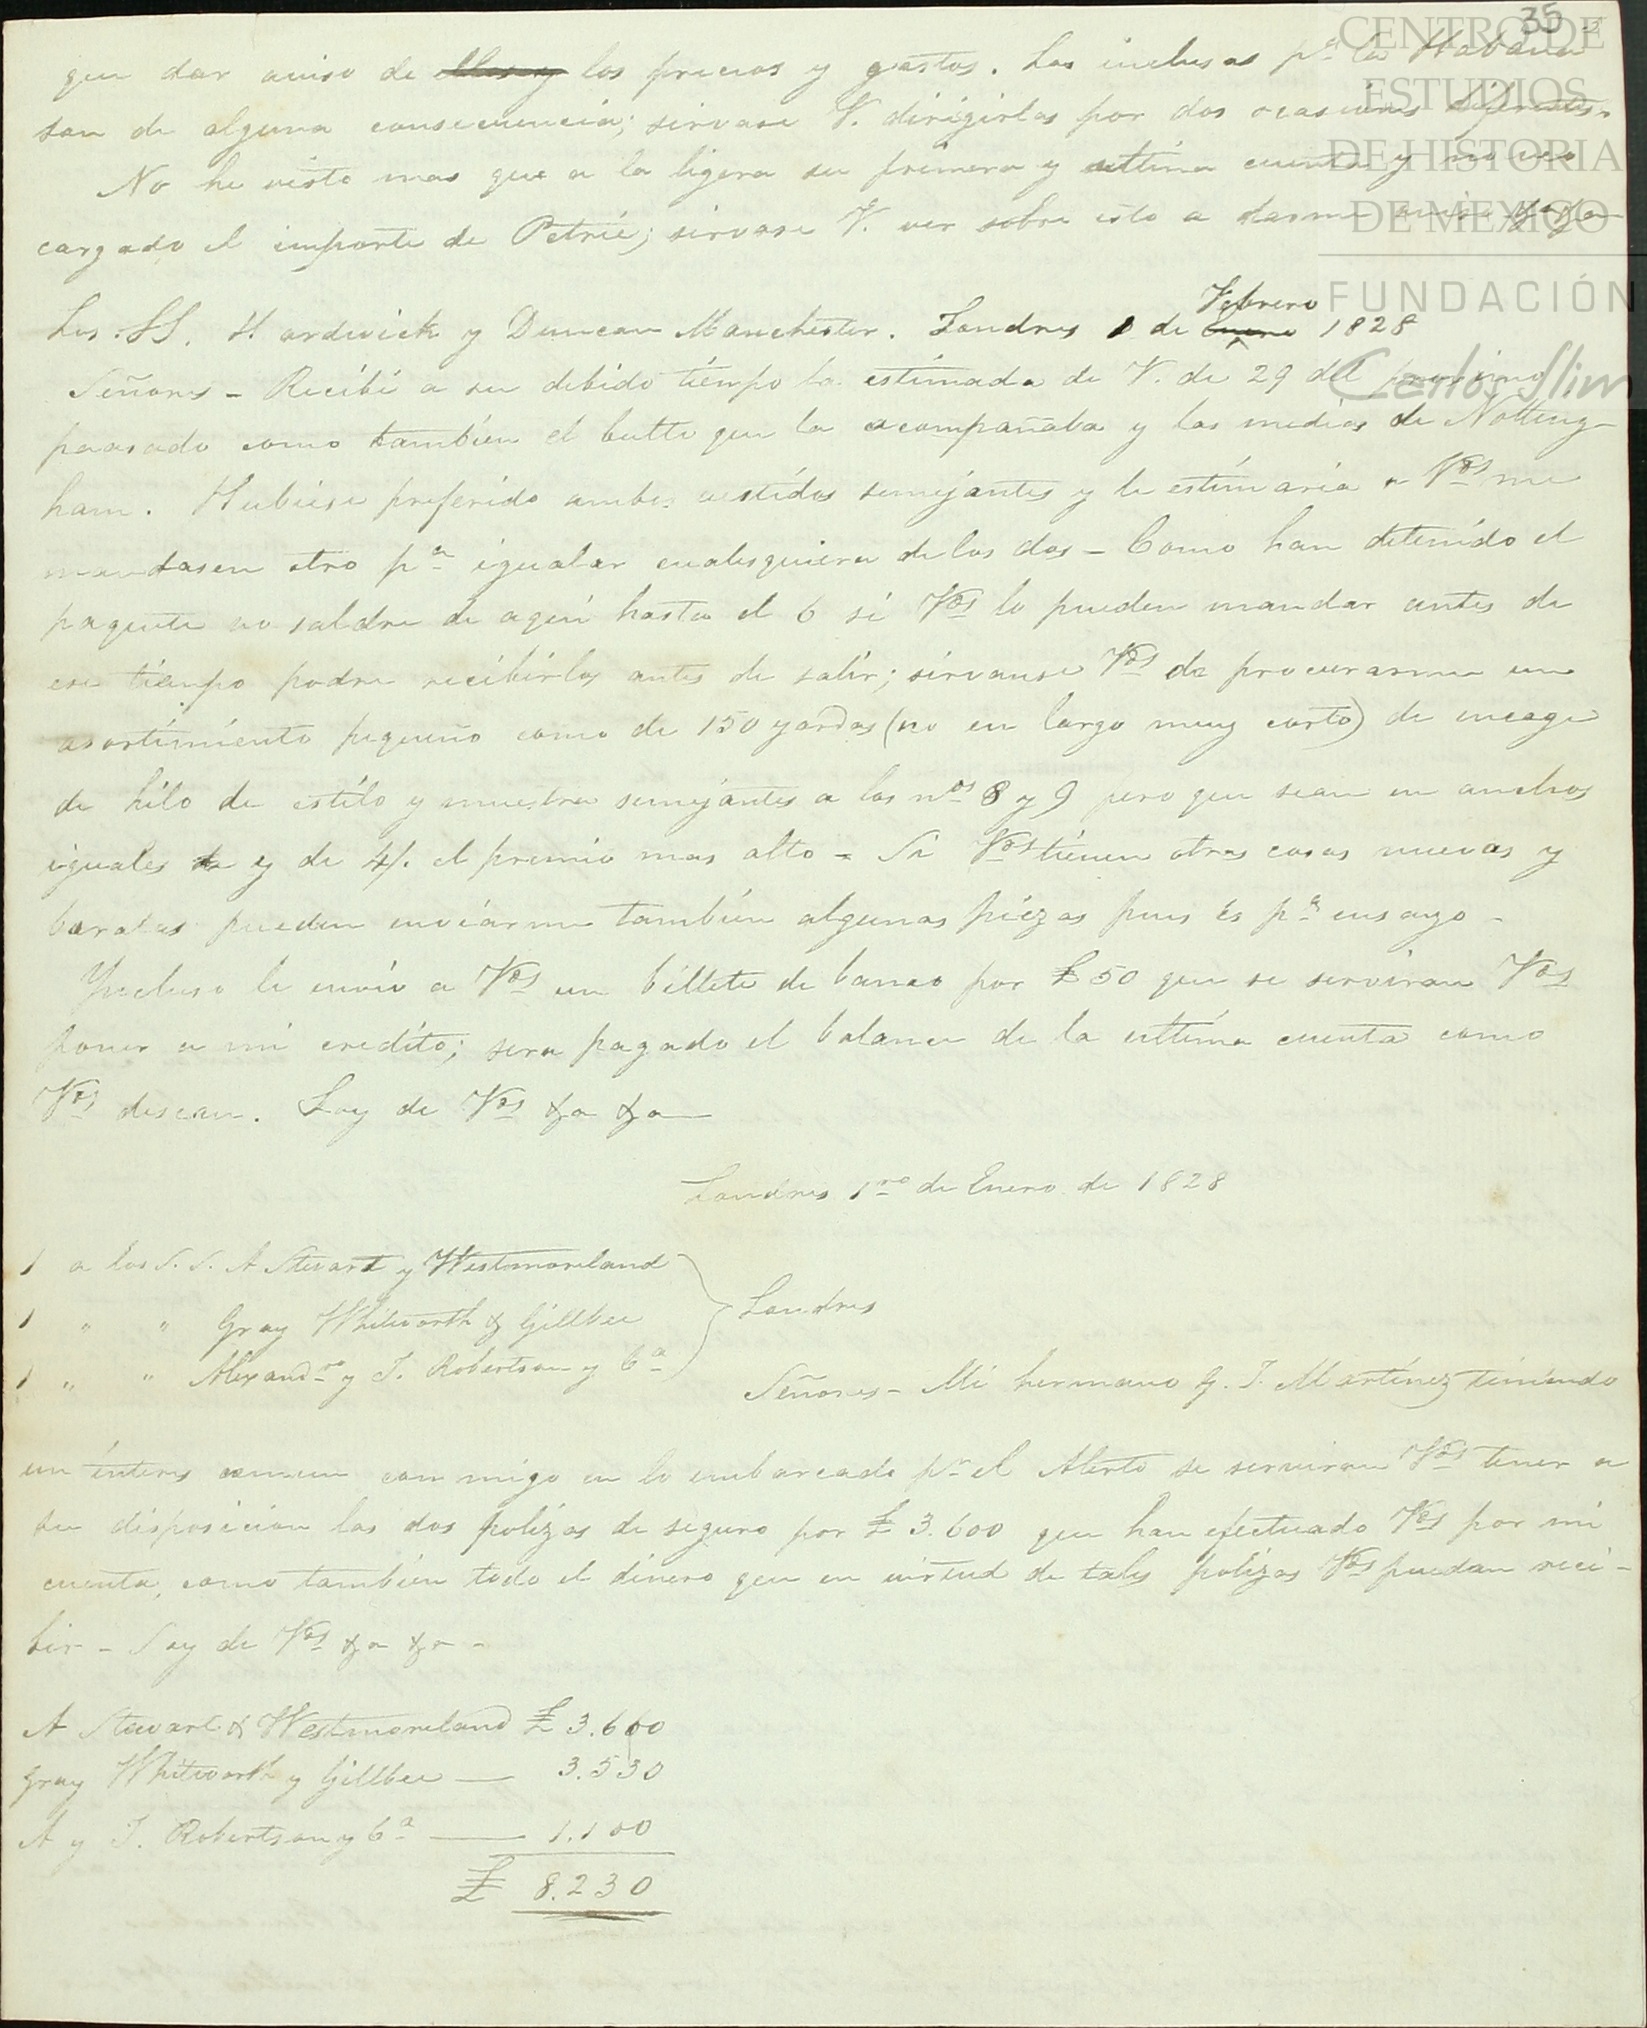 35
que dar aviso de los precios y gastos. Las inclusas pª la Habana
son de alguna consecuencia; sirvase V. dirigirlas por dos ocasiones diferentes.
No he visto mas que a la ligera su primera y ultima cuenta y no veo
cargado el importe de Petrie; sirvase V. ver sobre esto a darme aviso
Los SS. Hardwick y Duncan Manchester. Londres 1 de Enero Febrero 1828
Señores - Recibi a su debido tiempo la estimada de V. de 29 del proximo
passado como tambien el bulto que la acompañaba y las medias de Notting-
ham. Hubiese preferido ambos vestidos semejantes y le estimaria a Vds me
mandasen otro pª igualar cualesquiera de los dos - Como han detenido el
paquete no saldre de aqui hasta el 6 si Vds lo pueden mandar antes de
ese tiempo podre recibirlos antes de salir; sirvanse Vds de procurarme un
asortimiento pequeño como de 150 yardas (no en largo muy corto) de encage
de hilo de estilo y muestra semejantes a los nos 8 y 9 pero que sean en anchos
iguales y de 4/. el premio mas alto - Si Vds tienen otras cosas nuevas y
baratas pueden enviarme tambien algunas piezas pues es pª ensayo -
Yncluso le envio a Vds un billete de banco por £50 que se serviran Vds
poner a mi credito; sera pagado el balance de la ultima cuenta como
Vds desean. Soy de Vds &a &a
Londres 1ro de Enero de 1828
1 a los S. S. A Stewart y Westmoreland
1 " " Gray Whitworth & Gillbee
Londres
1 " " Alexandro y J. Robertson y Cª
Señores - Mi hermano G. J. Martínez teniendo
un interes comun con migo en lo embarcado pr el Alerto se serviran Vds tener a
su disposicion las dos polizas de seguro por £ 3.600 que han efectuado Vds por mi
cuenta, como tambien todo el dinero que en virtud de tales polizas Vds puedan reci-
bir - Soy de Vds &a &a -
A Stewart & Westmoreland £ 3.600
Gray Whitworth y Gillbee — 3.530
A y J. Robertson y Cª — 1.100
£ 8.230
CENTRO DE
ESTUDIOS
DE HISTORIA
DE MEXICO
FUNDACIÓN
Carlos Slim